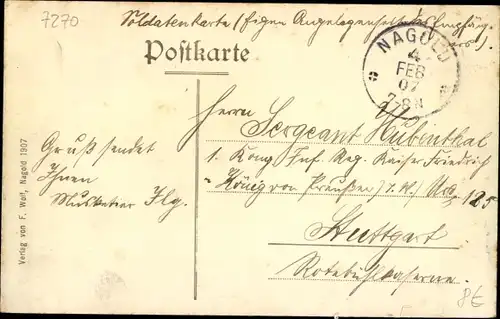 7270
Soldatenkarte (Eigen Angelegenheit des Empfäng-
ers).
Postkarte
NAGOLD
4
FEB
07
7-8N
Herrn
Sergeant Hübenthal
1. Komp. Inf. Reg. Kaiser Friedrich
König von Preußen (7. W.) No. 125
Stuttgart
Rotebühlkaserne.
Gruß sendet
Ihnen
Musketier Ilg.
Verlag von F. Wolf, Nagold 1907